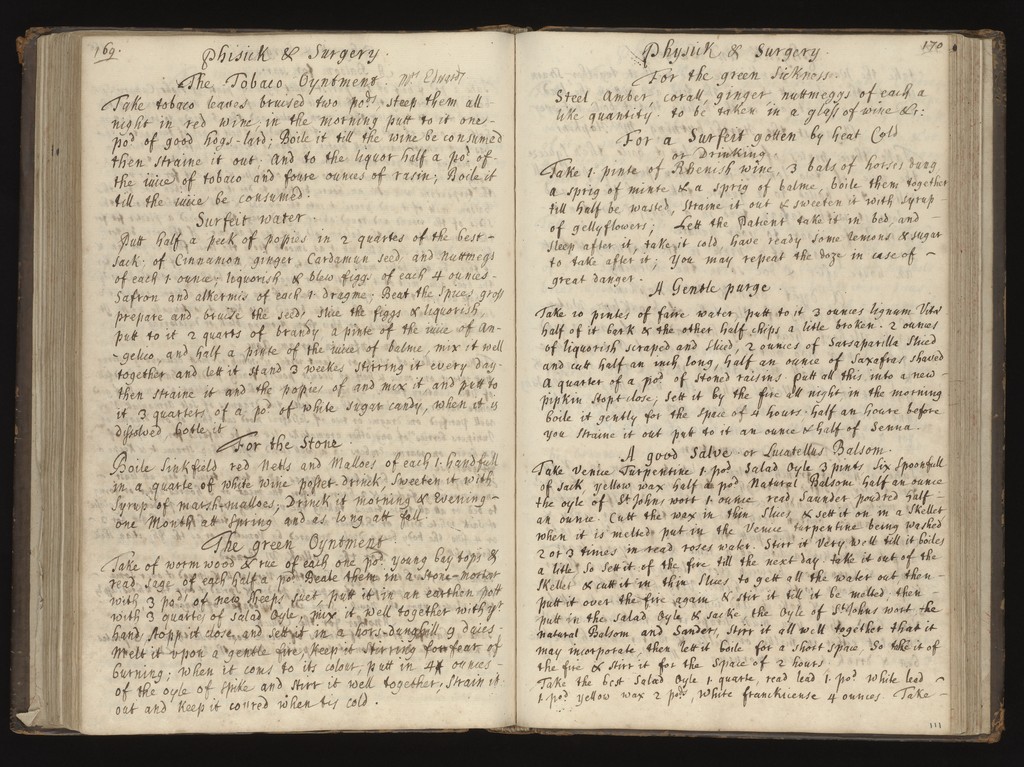 169.
Phisick & Surgery.
The Tobaco Oyntment. Mrs Edwards
Take tobaco leaves bruised two pods steep them all
night in red wine, in the morning putt to it one
pod of good hogs-lard; Boile it till the wine be consumed
then straine it out. And to the liquor half a pod of
the iuice of tobaco and foure ounces of rasin; Boile it
till the iuice be consumed.
Surfeit water.
Putt half a peck of popies in 2 quartes of the best
sack, of Cinnamon ginger Cardamun seed and nuttmegs
of each 1 ounce, liquorish & blew figgs of each 4 ounces
Safron and alkermis of each 1 dragme; Beat the spices gross
prepare and bruise the seeds slice the figgs & liquorish,
putt to it 2 quarts of brandy a pinte of the iuice of An-
gelico, and half a pinte of the iuice of balme, mix it well
together and lett it stand 3 weekes stirring it every day
then straine it and the popies of and mix it and putt to
it 3 quarters of a pod of white sugar candy, when it is
dissolved botle it
For the Stone.
Boile Sinkfield red Netls and Malloes of each 1 handfull
in a quarte of white wine posset drink, sweeten it with
Syrup of marsh-malloes, Drinck it morning & Evening
one Month att Spring and as long att fall.
The green Oyntment.
Take of wormwood & rue of each one pod young bay tops &
read sage of each half a pod Beate them in a stone-mortar
with 3 pods of new sheeps suet putt it in an earthen pott
with 3 quartes of Salad Oyle, mix it well together with yr
hand, stopp it close, and sett it in a hors-dunghill 9 daies;
Melt it upon a gentle fire, keep it stirring for fear of
burning; when it coms to its colour, putt in 4 ounces
of the oyle of spike and stirr it well together, strain it
out and keep it covred when tis cold.
170
Physick & Surgery.
For the green Sickness.
Steel Amber, corall, ginger, nuttmeggs of each a
like quantity to be taken in a glass of wine &c:
For a Surfeit gotten by heat Cold
or Drinking
Take 1 pinte of Rhenish wine, 3 bals of horses dung
a sprig of minte & a sprig of balme, boile them together
till half be wasted, straine it out & sweeten it with syrup
of gellyflowers; Lett the Patient take it in bed, and
sleep after it, take it cold have ready some lemons & sugar
to take after it; You may repeat the doze in case of
great danger.
A Gentle purge.
Take 10 pintes of faire water, putt to it 3 ounces lignum Vitæ
half of it bark & the other half chips a little broken. 2 ounces
of liquorish scraped and sliced, 2 ounces of Sarsaparilla sliced
and cutt half an inch long, half an ounce of Saxafras shaved
A quarter of a pod of stoned raisins putt all this into a new
pipkin stopt close; sett it by the fire all night in the morning
boile it gently for the space of 4 hours. half an houre before
you straine it out putt to it an ounce & half of Senna.
A good Salve or Lucatellus Balsom.
Take Venice Turpentine 1 pod Salad Oyle 3 pints Six Spoonfull
of sack yellow wax half a pod Natural Balsome half an ounce
the oyle of St Johns wort 1 ounce read Saunder poudred half
an ounce. Cutt the wax in thin slices & sett it on in a skellet
when it is melted putt in the Venice turpentine being washed
2 or 3 times in read roses water. Stirr it very well till it boiles
a litle so sett it of the fire till the next day take it out of the
skellet & cutt it in thin slices to gett all the water out then
putt it over the fire again & stir it till it be melted, then
putt in the Salad Oyle & sacke, the Oyle of St Johns wort the
natural Balsom and Sanders, stirr it all well together that it
may incorporate, then lett it boile for a short space, so take it of
the fire & stirr it for the space of 2 hours
Take the best Salad Oyle 1 quarte, read lead 1 pod white lead
1 pod yellow wax 2 pods, white franckincense 4 ounces. Take